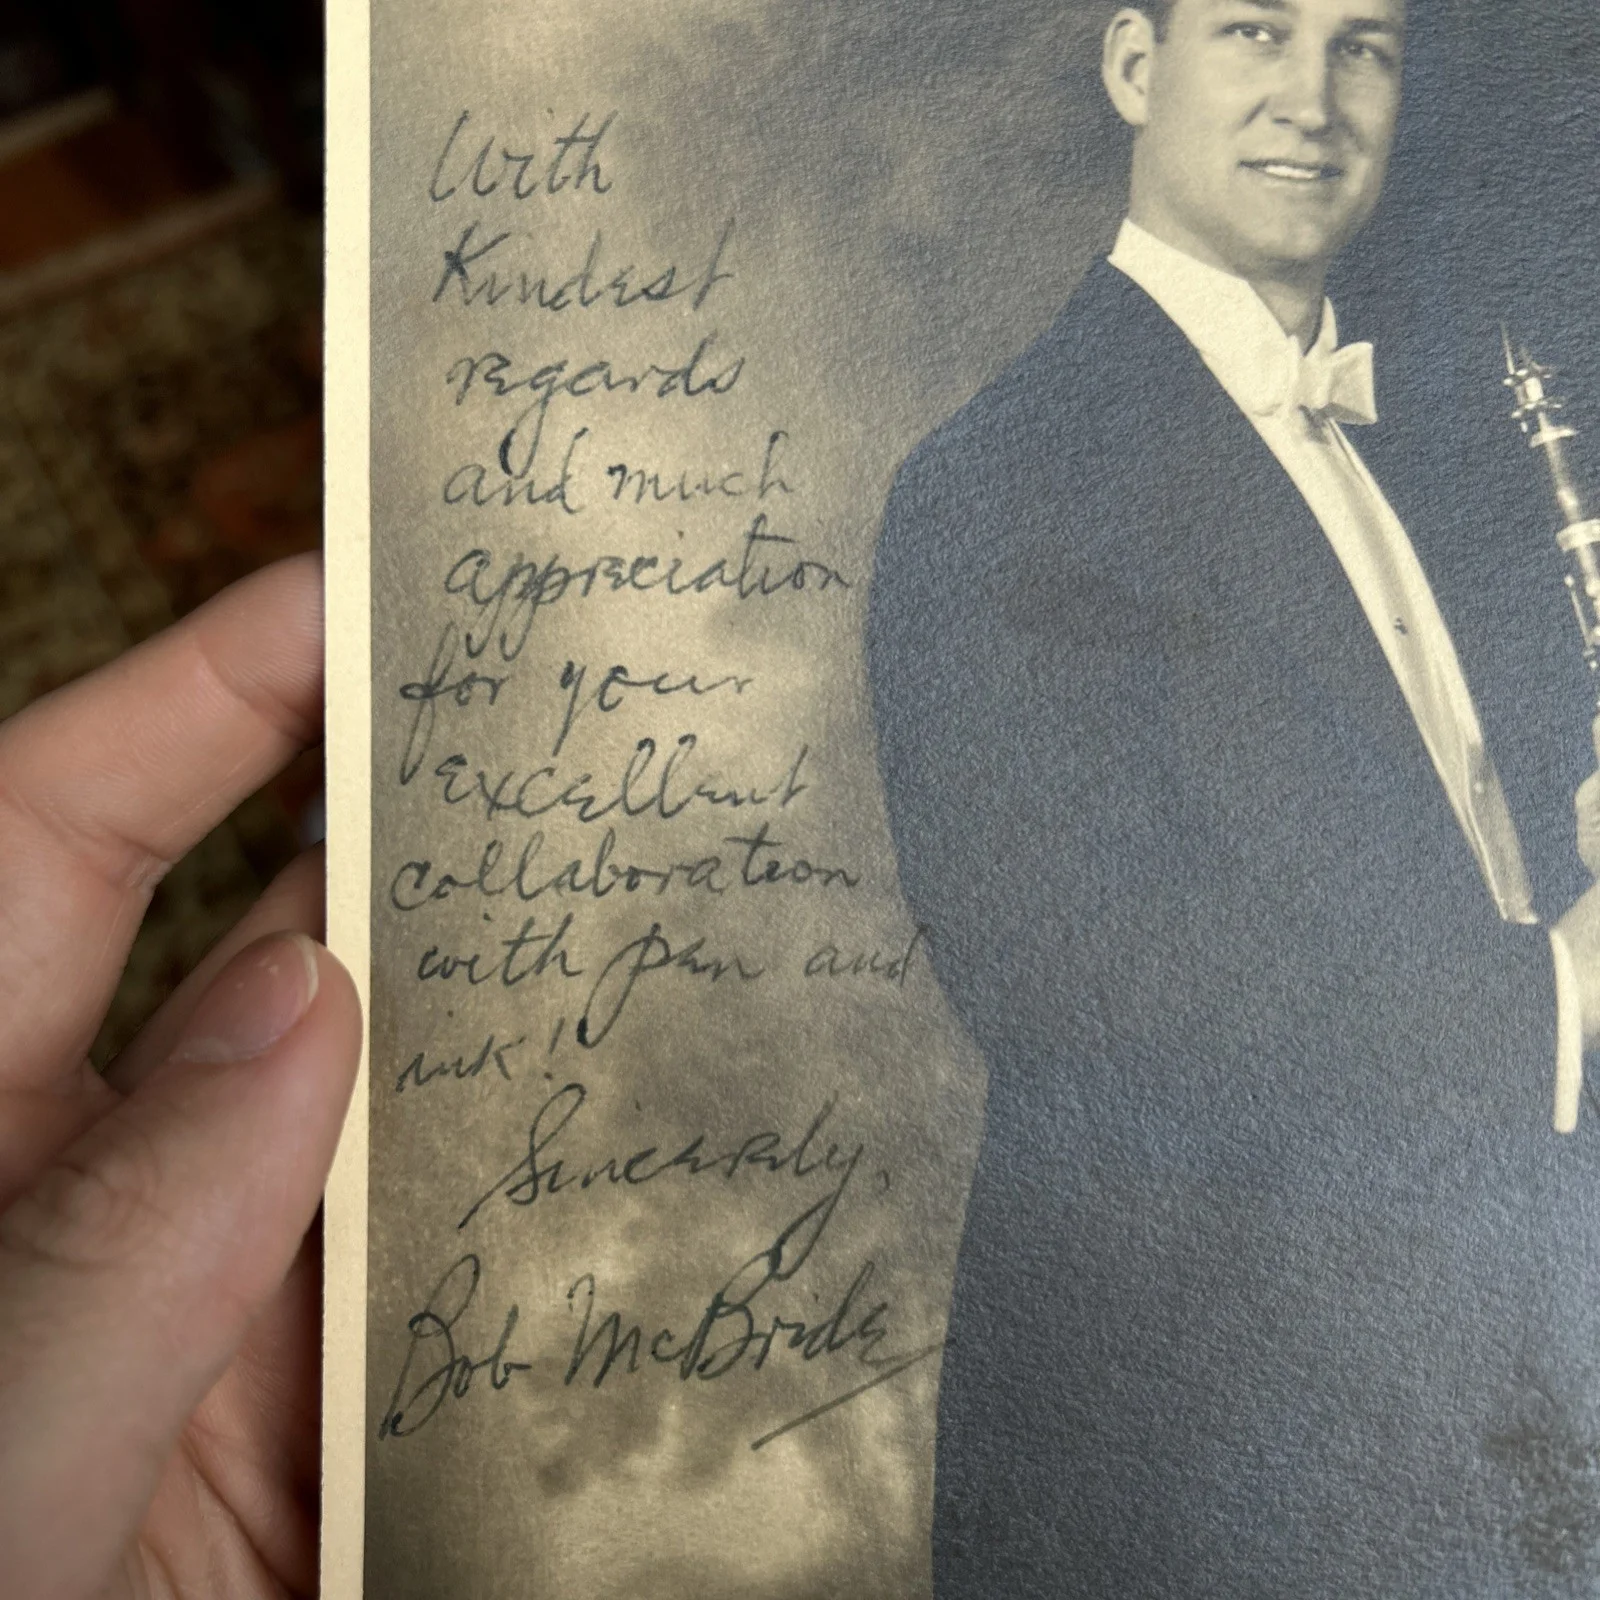 With
Kindest
regards
and much
appreciation
for your
excellent
collaboration
with pen and
ink!
Sincerely,
Bob McBride